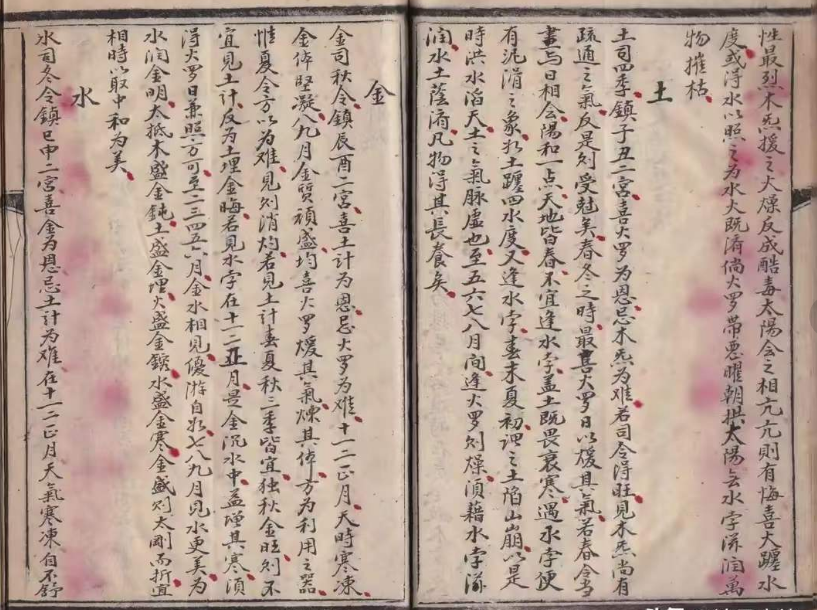 性最烈木炁援之大燥反成酷毒太陽会之相亢亢則有悔喜大躔水
度或淂水以照之为水火既济倘火罗帶悪曜朝拱太陽去水孛洴润萬
物摧枯
土
土司四季鎮子丑二宮喜火罗为恩忌木炁为难若司令淂旺見木炁尚有
疏通之氣反是刻受尅矣春冬之時最喜火罗日以煖其氣若春令当
晝与日相会陽和一点天地皆春不宜逢水孛盖土既畏衰寒遇水孛便
有汜涓之象况土躔四水度又逢水孛春末夏初謂之土陷山崩以是
時洪水滔天土之氣脉虛也至五六七八月间逢火罗刻燥湏藉水孛洴
润水土蔭济凡物得其長養矣
金
金司秋令鎮辰酉二宮喜土计为恩忌火罗为难十一二正月天時寒凍
金体堅凝八九月金質頑盛均喜火罗煖其氣煉其体方为利用之器
惟夏令方以为难見刻消灼若見土计春夏秋三季皆宜独秋金旺刻不
宜見土计反为土埋金晦若見水孛在十一二正月是金沉水中益增其寒湏
淂火罗日兼照方可至二三四五六月金水相見優游自如七八九月見水更美为
水润金明太抵木盛金鈍土盛金埋火盛金鎔水盛金寒金盛刻太剛而折宜
相時以取中和为美
水
水司冬令鎮巳申二宮喜金为恩忌土计为难在十一二正月天氣寒凍自不舒